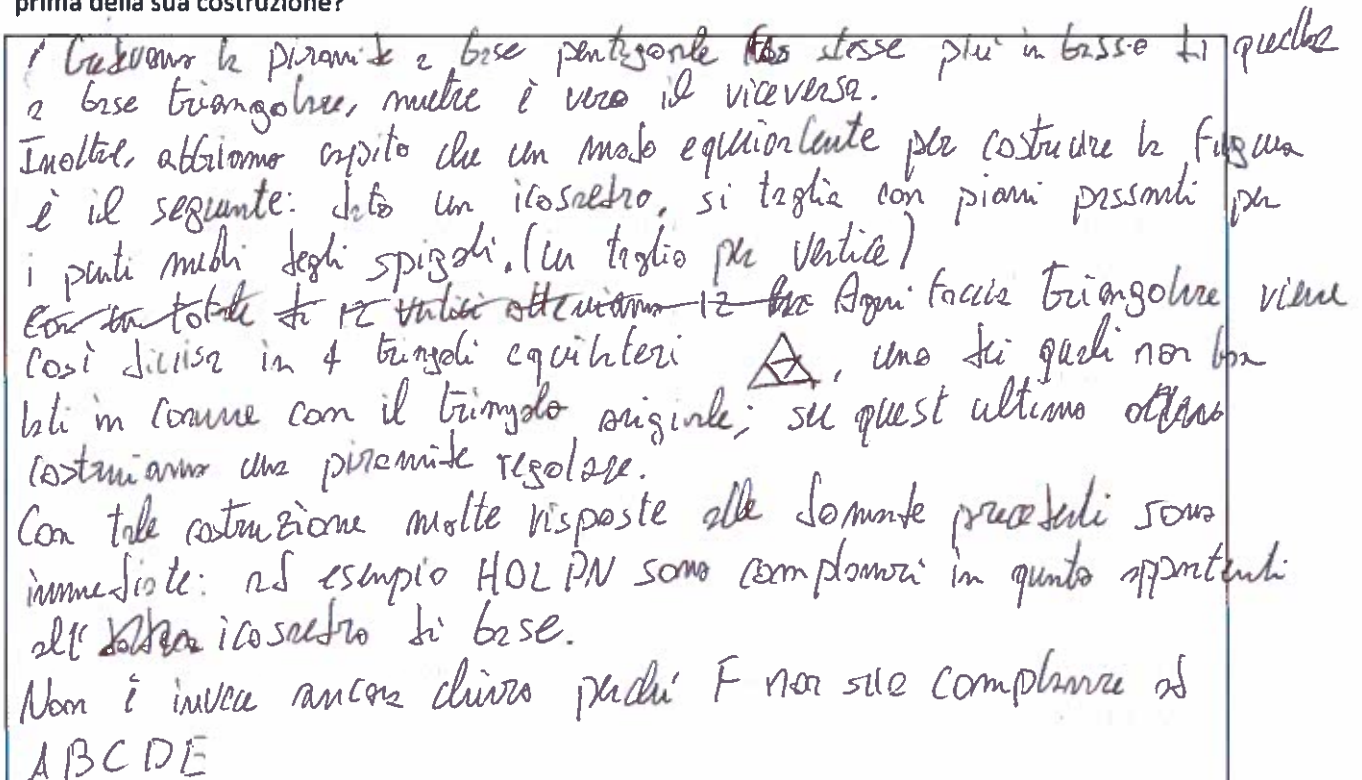 prima della sua costruzione?
Credevamo la piramide a base pentagonale stesse più in basso di quella
a base triangolare, mentre è vero il viceversa.
Inoltre, abbiamo capito che un modo equivalente per costruire la figura
è il seguente: dato un icosaedro, si taglia con piani passanti per
i punti medi degli spigoli. (un taglio per vertice)
Con un totale di 12 vertici otteniamo 12 Ogni faccia triangolare viene
così divisa in 4 triangoli equilateri , uno dei quali non ha
lati in comune con il triangolo originale; su quest ultimo
costruiamo una piramide regolare.
Con tale costruzione molte risposte alle domande precedenti sono
immediate: ad esempio HOLPN sono complanari in quanto appartenenti
all' icosaedro di base.
Non è invece ancora chiaro perché F non sia complanare ad
ABCDE